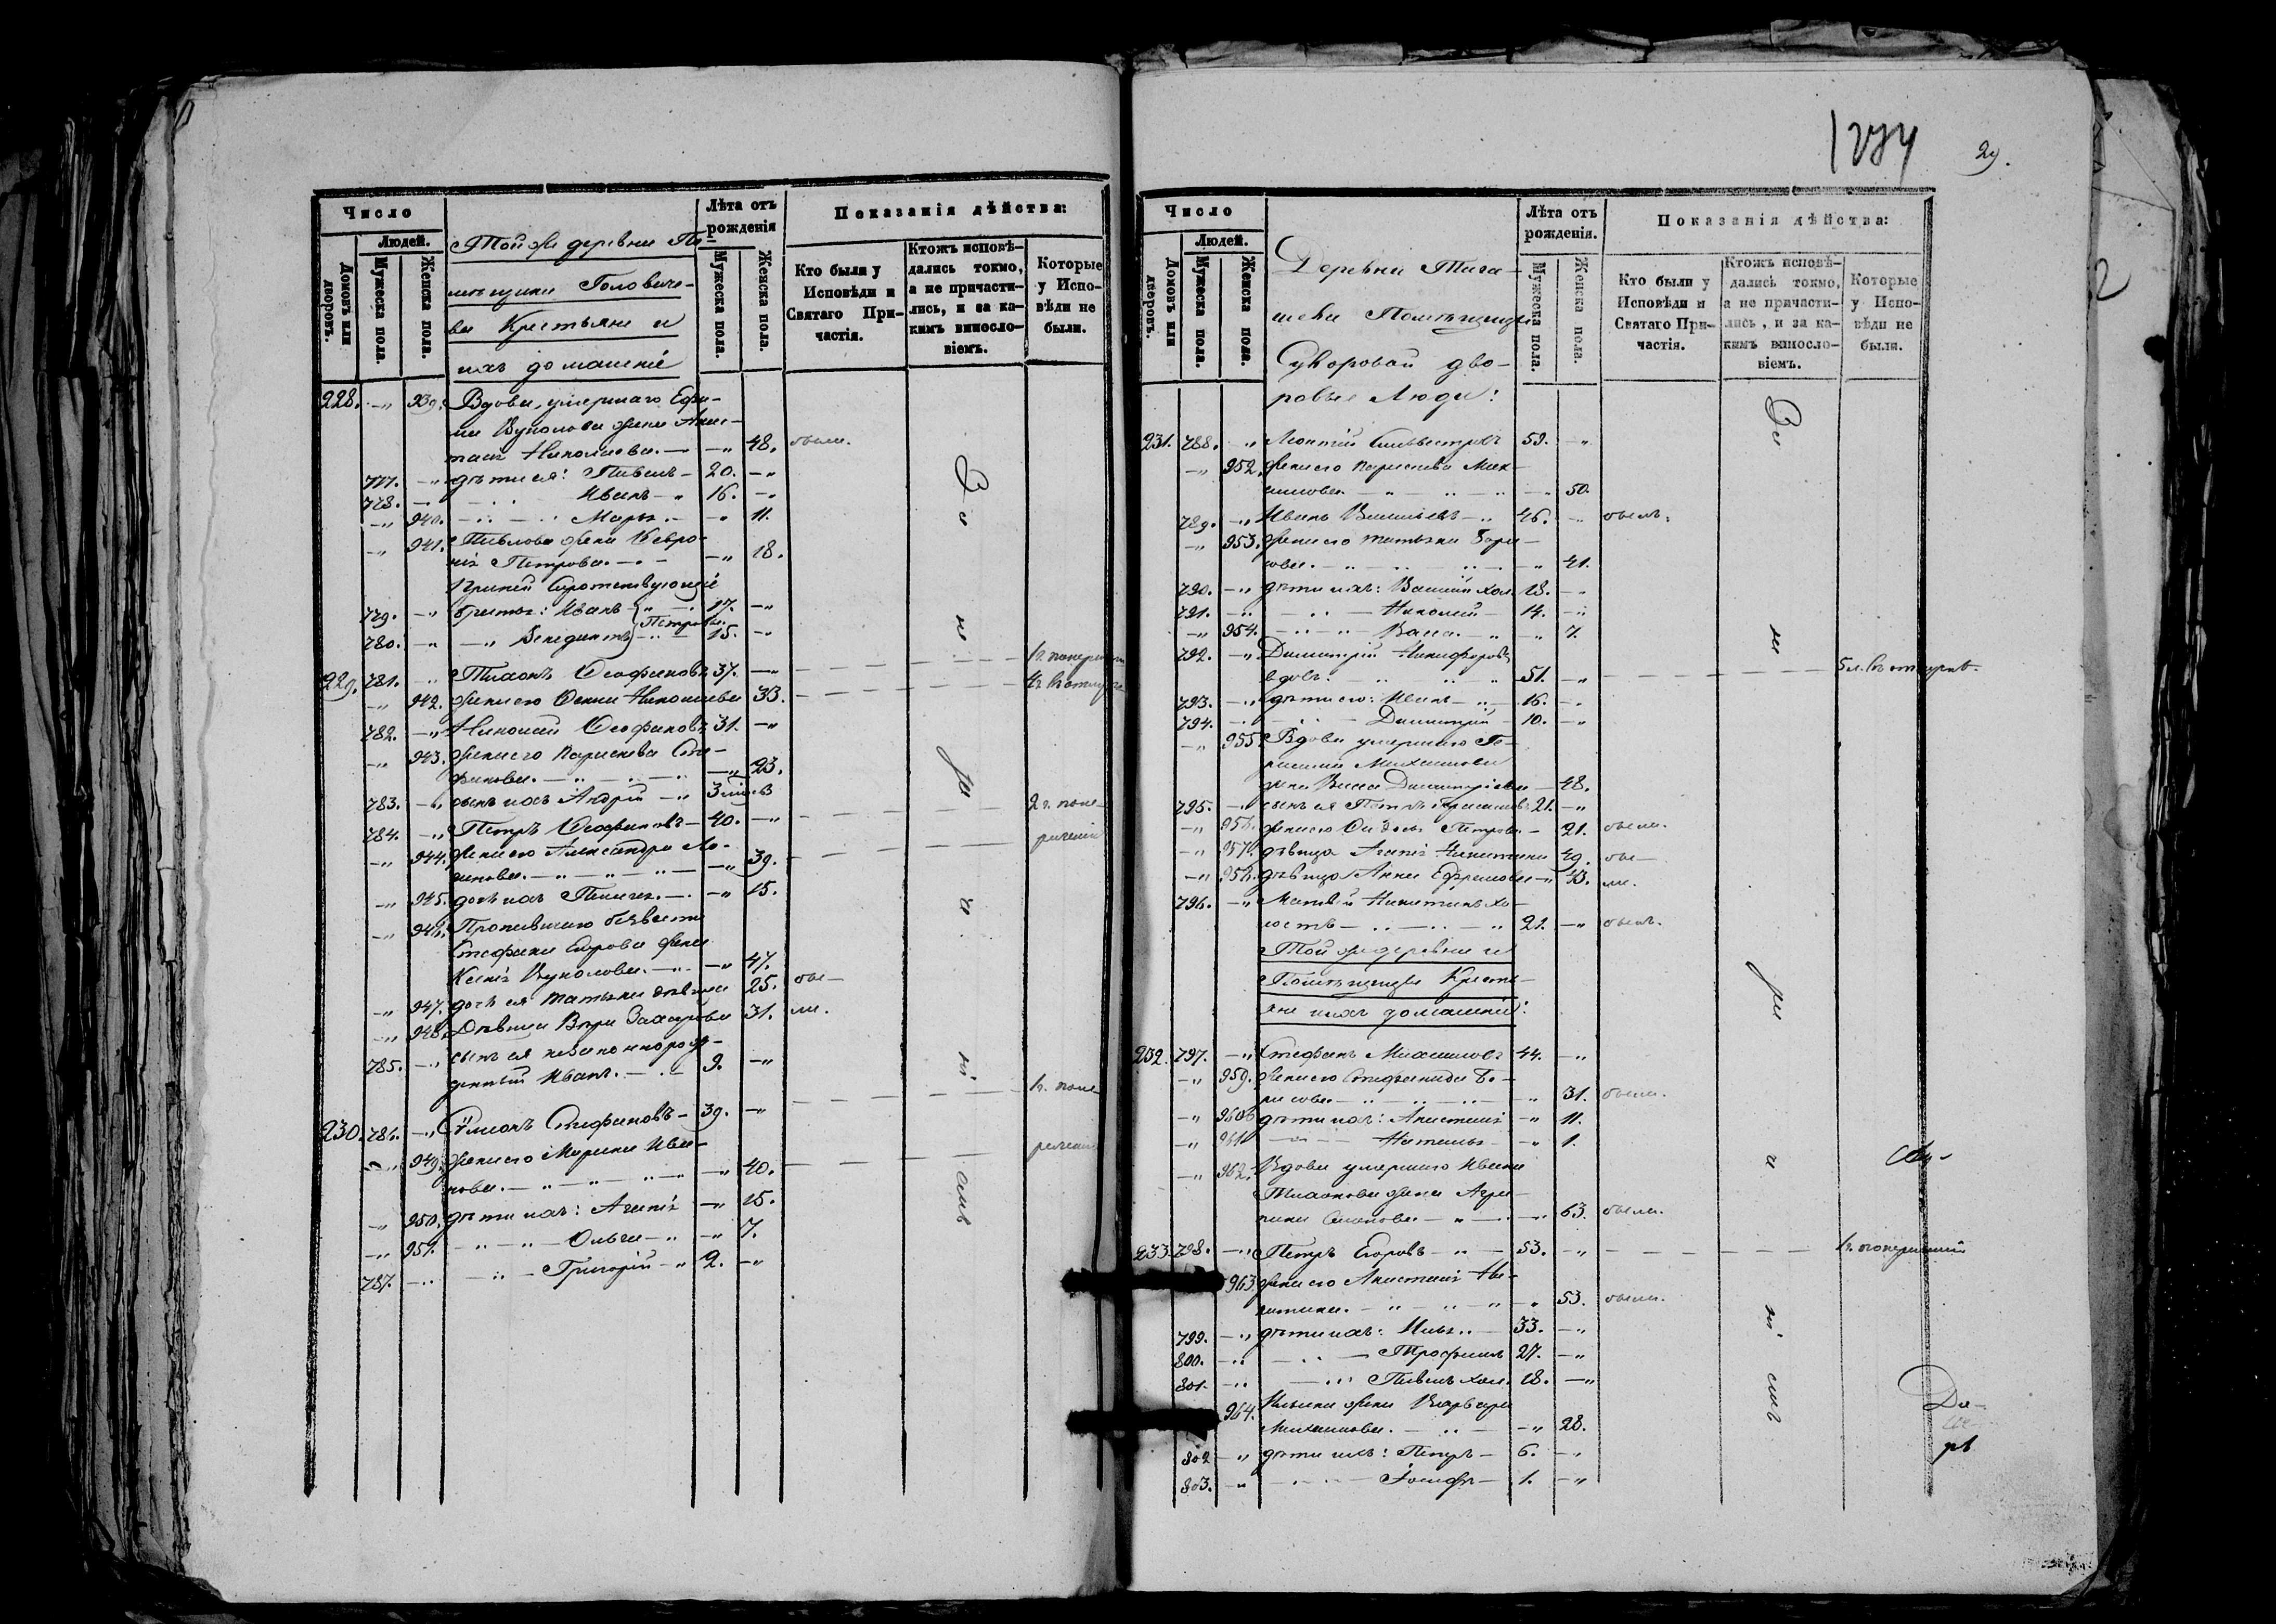 Число
Людей.
Домовъ или дворовъ.
Мужеска пола.
Женска пола.
Той же деревни По-
мѣщика Головаче-
ва Крестьяне и
ихъ домашніе
Лѣта отъ
рожденія
Мужеска пола.
Женска пола.
Показанія дѣйства:
Кто были у
Исповѣди и
Святаго При-
частія.
Ктожъ исповѣ-
дались токмо,
а не причасти-
лись, и за ка-
кимъ винос­ло-
віемъ.
Которые
у Испо-
вѣди не
были.
228. -„ 939. Вдова, умершаго Ефи-
ма Вуколова жена Анис-
таія Николаева. - -„ 48. были.
777. -„ дѣти ея: Павелъ - 20. -„
778. - Иванъ -„ 16. -„
-„ 940. Марья. - -„ 11.
-„ 941. Павлова жена Февро-
нія Петрова. - -„ 18.
При ней сиротствующіе
779. -„ братья: Иванъ 17. -„
Петровы.
780. -„ -„ Венедиктъ 15. -„
229. 781. Тихонъ Ѳеофановъ 37. -„ 1 г. нанерачен
-„ 942. жена его Ѳекла Николаева 33. 4 г. въ отлуч
782. -„ Николай Ѳеофановъ 31. -„
-„ 943. жена его Параскева Сте-
фанова. -„ 23.
783. -„ сынъ ихъ Андрей -„ 3 мѣсяц
784. -„ Петръ Ѳеофановъ - 40. -„ 2 г. поне-
-„ 944. жена его Александра Ло- раченію
гинова. -„ 39.
-„ 945. дочь ихъ Пелагея. - -„ 15.
-„ 946. Пропавшаго безвѣсти
Стефана Егорова жена
Ксенія Вуколова. -„ 47.
-„ 947. дочь ея Татьяна дѣвица 25. бы-
-„ 948. Дѣвица Вѣра Захарова 31. ли.
785. -„ сынъ ея незаконнорож-
денный Иванъ. - 9. -„
230. 786. -„ Сѷмеонъ Стефановъ - 39. -„ 1 г. поне-
-„ 949. жена его Марина Ива- раченію
нова. -„ 40.
-„ 950. дѣти ихъ: Агапія -„ 15.
-„ 951. Ольга -„ -„ 7.
787. Григорій -„ 2. -„
За
не
ра
че
ні
емъ
1274
29.
Число
Людей.
Домовъ или дворовъ.
Мужеска пола.
Женска пола.
Деревни Тига-
шева Помѣщицы
Суворовой дво-
ровые Люди:
Лѣта отъ
рожденія.
Мужеска пола.
Женска пола.
Показанія дѣйства:
Кто были у
Исповѣди и
Святаго При-
частія.
Ктожъ исповѣ-
дались токмо,
а не причасти-
лись, и за ка-
кимъ винос­ло-
віемъ.
Которые
у Испо-
вѣди не
были.
231. 788. -„ Леонтій Сильвестровъ 59. -„
-„ 952. жена его Параскева Мак-
симова -„ 50.
789. -„ Иванъ Васильевъ -„ 46. -„ былъ.
-„ 953. жена его Татьяна Бори-
сова. -„ 41.
790. -„ дѣти ихъ: Василій хол. 18. -„
791. -„ Николай - 14. -„
-„ 954. Васса. -„ -„ 7.
792. -„ Димитрій Никифоровъ
вдовъ: 51. -„ 5 л. въ отлучкѣ
793. -„ дѣти его: Иванъ -„ 16. -„
794. - Димитрій - 10. -„
-„ 955. Вдова умершаго Ге-
расима Михаилова
жена Васса Димитріева - 48.
795. -„ сынъ ея Петръ Герасимовъ 21. -„
-„ 956. жена его Ѳедосья Петрова - 21. были.
-„ 957. дѣвица Агапія Никитина 49. бы-
-„ 958. дѣвица Анна Ефремова -„ 43. ли.
796. -„ Матвѣй Никитинъ хо-
лостъ 21. -„ былъ.
Той же деревни и
Помѣщицы Кресть-
яне и ихъ домашніе:
232. 797. -„ Стефанъ Михаиловъ 44. -„
-„ 959. жена его Стефанида Бо-
рисова -„ 31. были.
-„ 960. дѣти ихъ: Анастасія -„ 11.
-„ 961. Наталья -„ 1.
-„ 962. Вдова умершаго Ивана
Тихонова жена Агри-
пина Семенова -„ 63. были.
233. 798. -„ Петръ Егоровъ -„ 53. -„ 1 г. нанерачен
963. жена его Анастасія Ни-
китина. -„ 53. были.
799. -„ дѣти ихъ: Илья 33. -„
800. Трофимъ 27. -„
801. Павелъ хол. 18. -„
964. Ильина жена Варвара
Михаилова. -„ 28.
802. -„ дѣти ихъ: Петръ - 6. -„
803. -„ Іосифъ - 1. -„
За
не
ра
че
ні
емъ